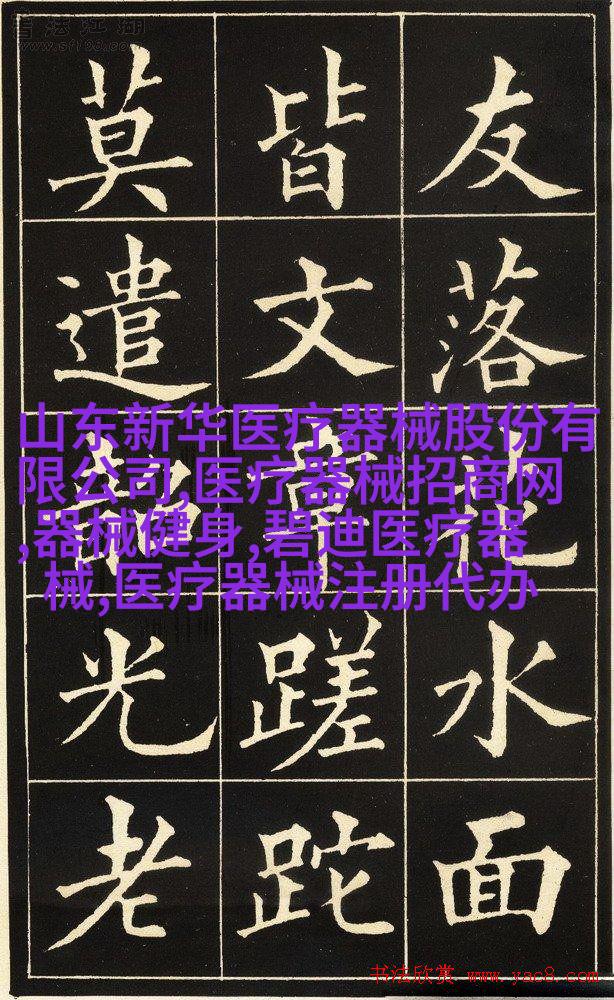 书法江湖
www.sf108.com
友落花水面
皆文章蹉跎
莫遣韶光老
山东新华医疗器械股份有
限公司,医疗器械招商网
,器械健身,碧迪医疗器
械,医疗器械注册代办
书法欣赏 www.yac8.com